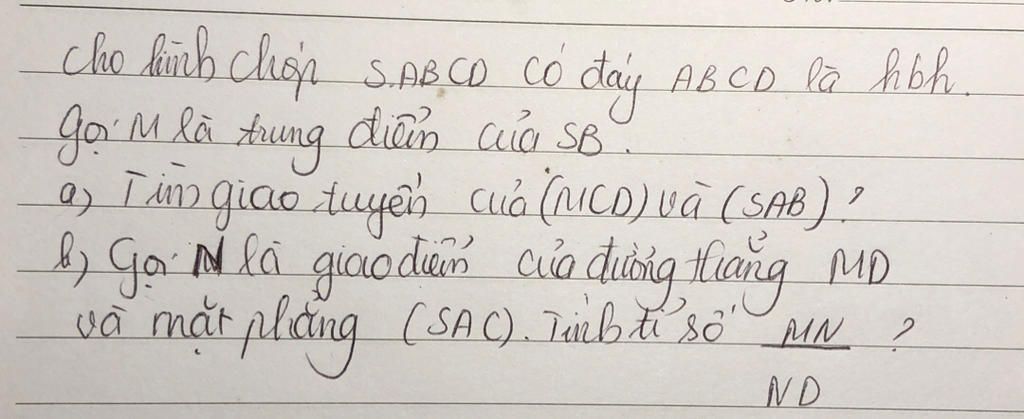 Cho hình chóp S.ABCD có đáy ABCD là hbh.
Gọi M là trung điểm của SB.
a, Tìm giao tuyến của (MCD) và (SAB)?
b, Gọi N là giao điểm của đường thẳng MD
và mặt phẳng (SAC). Tính tỉ số MN ?
ND